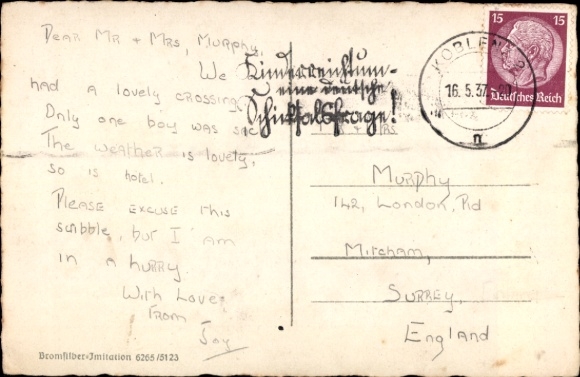 Dear Mr + Mrs, Murphy,
We
had a lovely crossing
Only one boy was
The weather is lovely,
so is hotel.
Please excuse this
scribble, but I am
in a hurry
With Love
From
Joy
Bromsilber=Imitation 6265/5123
Kinderreichtum-
eine deutsche
Schicksalsfrage!
KOBLENZ 2
16.5.37
n
15 15
Deutsches Reich
Mrs.
Murphy
142, London, Rd
Mitcham,
Surrey,
England